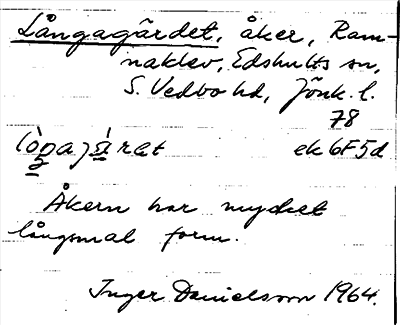 Långagärdet, åker, Ram-
naklev, Edshults sn,
S. Vedbo hd, Jönk. l.
78
ek 6F5d
Åkern har mycket
långsmal form.
Inger Danielsson 1964.